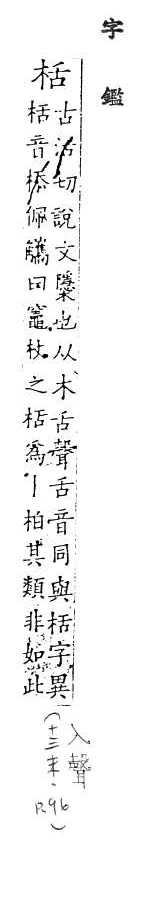 字鑑
栝
古活切說文檃也从木舌聲舌音同與栝字異
栝音㮇佩觿曰竈杖之栝爲丨柏其類非如此
入聲
(十三末、P.96)